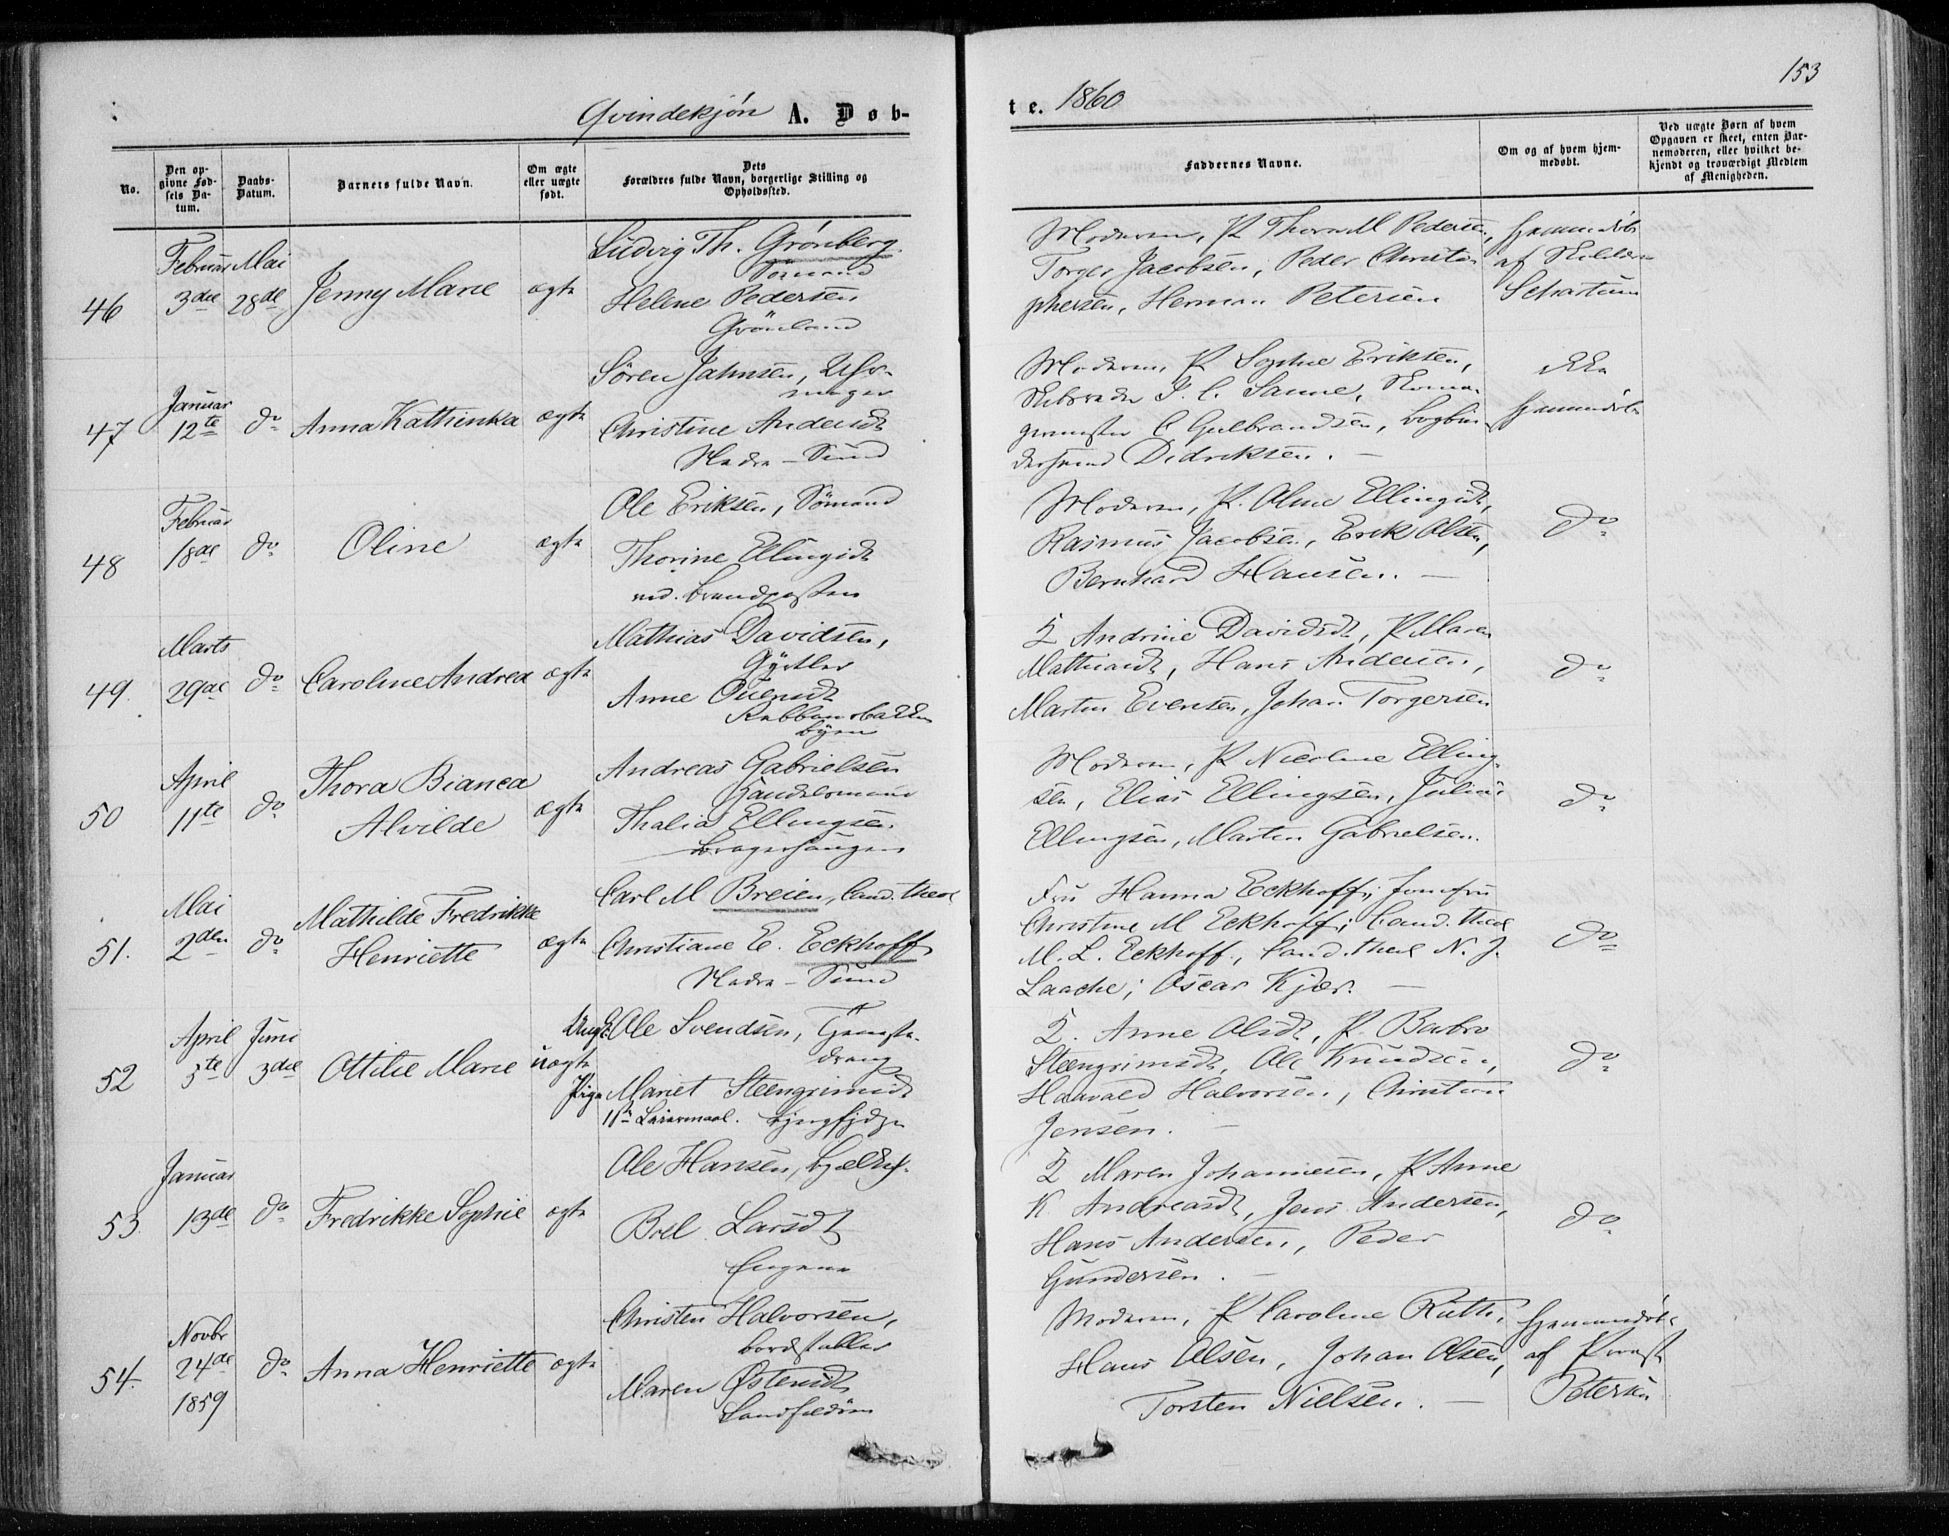 153
Qvindekjøn A. Døb-
te. 1860
No.
Den op-
givne Fød-
sels Da-
tum.
Daabs-
Datum.
Barnets fulde Navn.
Om ægte
eller uægte
født.
Dets
Forældres fulde Navn, borgerlige Stilling og
Opholdssted.
Faddernes Navne.
Om og af hvem hjem-
medøbt.
Ved uægte Børn af hvem
Opgaven er skeet, enten Bar-
nemoderen, eller hvilket be-
kjendt og troværdigt Medlem
af Menigheden.
46
Februar
3die
Mai
28de
Jenny Marie
ægte
Ludvig Th. Grönberg
Sömand
Helene Pedersen
Grönland
Moderen, P. Thora M Pedersen,
Torger Jacobsen, Peder Christo-
phersen, Herman Petersen
Hjemmedöbt
af
47
Januar
12te
do
Anna Kathinka
ægte
Sören Jahnsen, Uhr-
mager
Christine Andersdt
Nedre-Sund
Moderen, P Sophie Eriksen,
J. C. Sanne, Skoma-
germester C Gulbrandsen, Bogbin-
dersvend Didriksen. -
ikke
hjemmedöbt
48
Februar
18de
do
Oline
ægte
Ole Eriksen, Sömand
Thorine Ellingsdt
ved Brandposten
Moderen, P. Oline Ellingsdt,
Rasmus Jacobsen, Erik Olsen,
Bernhard Hansen. -
do
49.
Marts
29de
do
Caroline Andrea
ægte
Mathias Davidsen,
Gjörtler
Anne Evensdt
byen
Andrine Davidsdt, P Maren
Mathiasdt, Hans Andersen,
Martin Evensen, Johan Torgersen
do
50
April
11te
do
Thora Bianca
Alvilde
ægte
Andreas Gabrielsen
Handelsmand
Thalia Ellingsen
Moderen, P Nicoline Elling-
sen, Elias Ellingsen, Julius
Ellingsen, Martin Gabrielsen.
do
51.
Mai
2den
do
Mathilde Fredrikke
Henriette
ægte
Carl M Breien, Cand. theol
Christiane E. Eckhoff
Nedre-Sund
Fru Hanna Eckhoff; Jomfru
Christine M Eckhoff; Cand. theol
M. L. Eckhoff, Cand. theol N. J.
Laache; Oscar Kjær. -
do
52
April
5te
Juni
3die
Ottilie Marie
uægte
Ungk. Ole Svendsen, Tjeneste-
dreng
Pige Mariet Steengrimsdt
1ste Leiermaal.
Anne Olsdt, P. Barbro
Steengrimsdt, Ole Knudsen,
Haavald Halvorsen, Christian
Jensen. -
do
53
Januar
13de
do
Fredrikke Sophie
ægte
Ole Hansen,
Brel Larsdt
Engene
Maren Johannesen, P Anne
K Andreasdt, Jens Andersen,
Hans Andersen, Peder
Gundersen. -
do
54.
Novbr
24de
1859
do
Anna Henriette
ægte
Christen Halvorsen,
Bordstabler
Maren Østensdt
Landfaldöen
Moderen, P Caroline Ruth,
Hans Olsen, Johan Olsen,
Torsten Nielsen. -
Hjemmedöbt
af Provst
Petersen